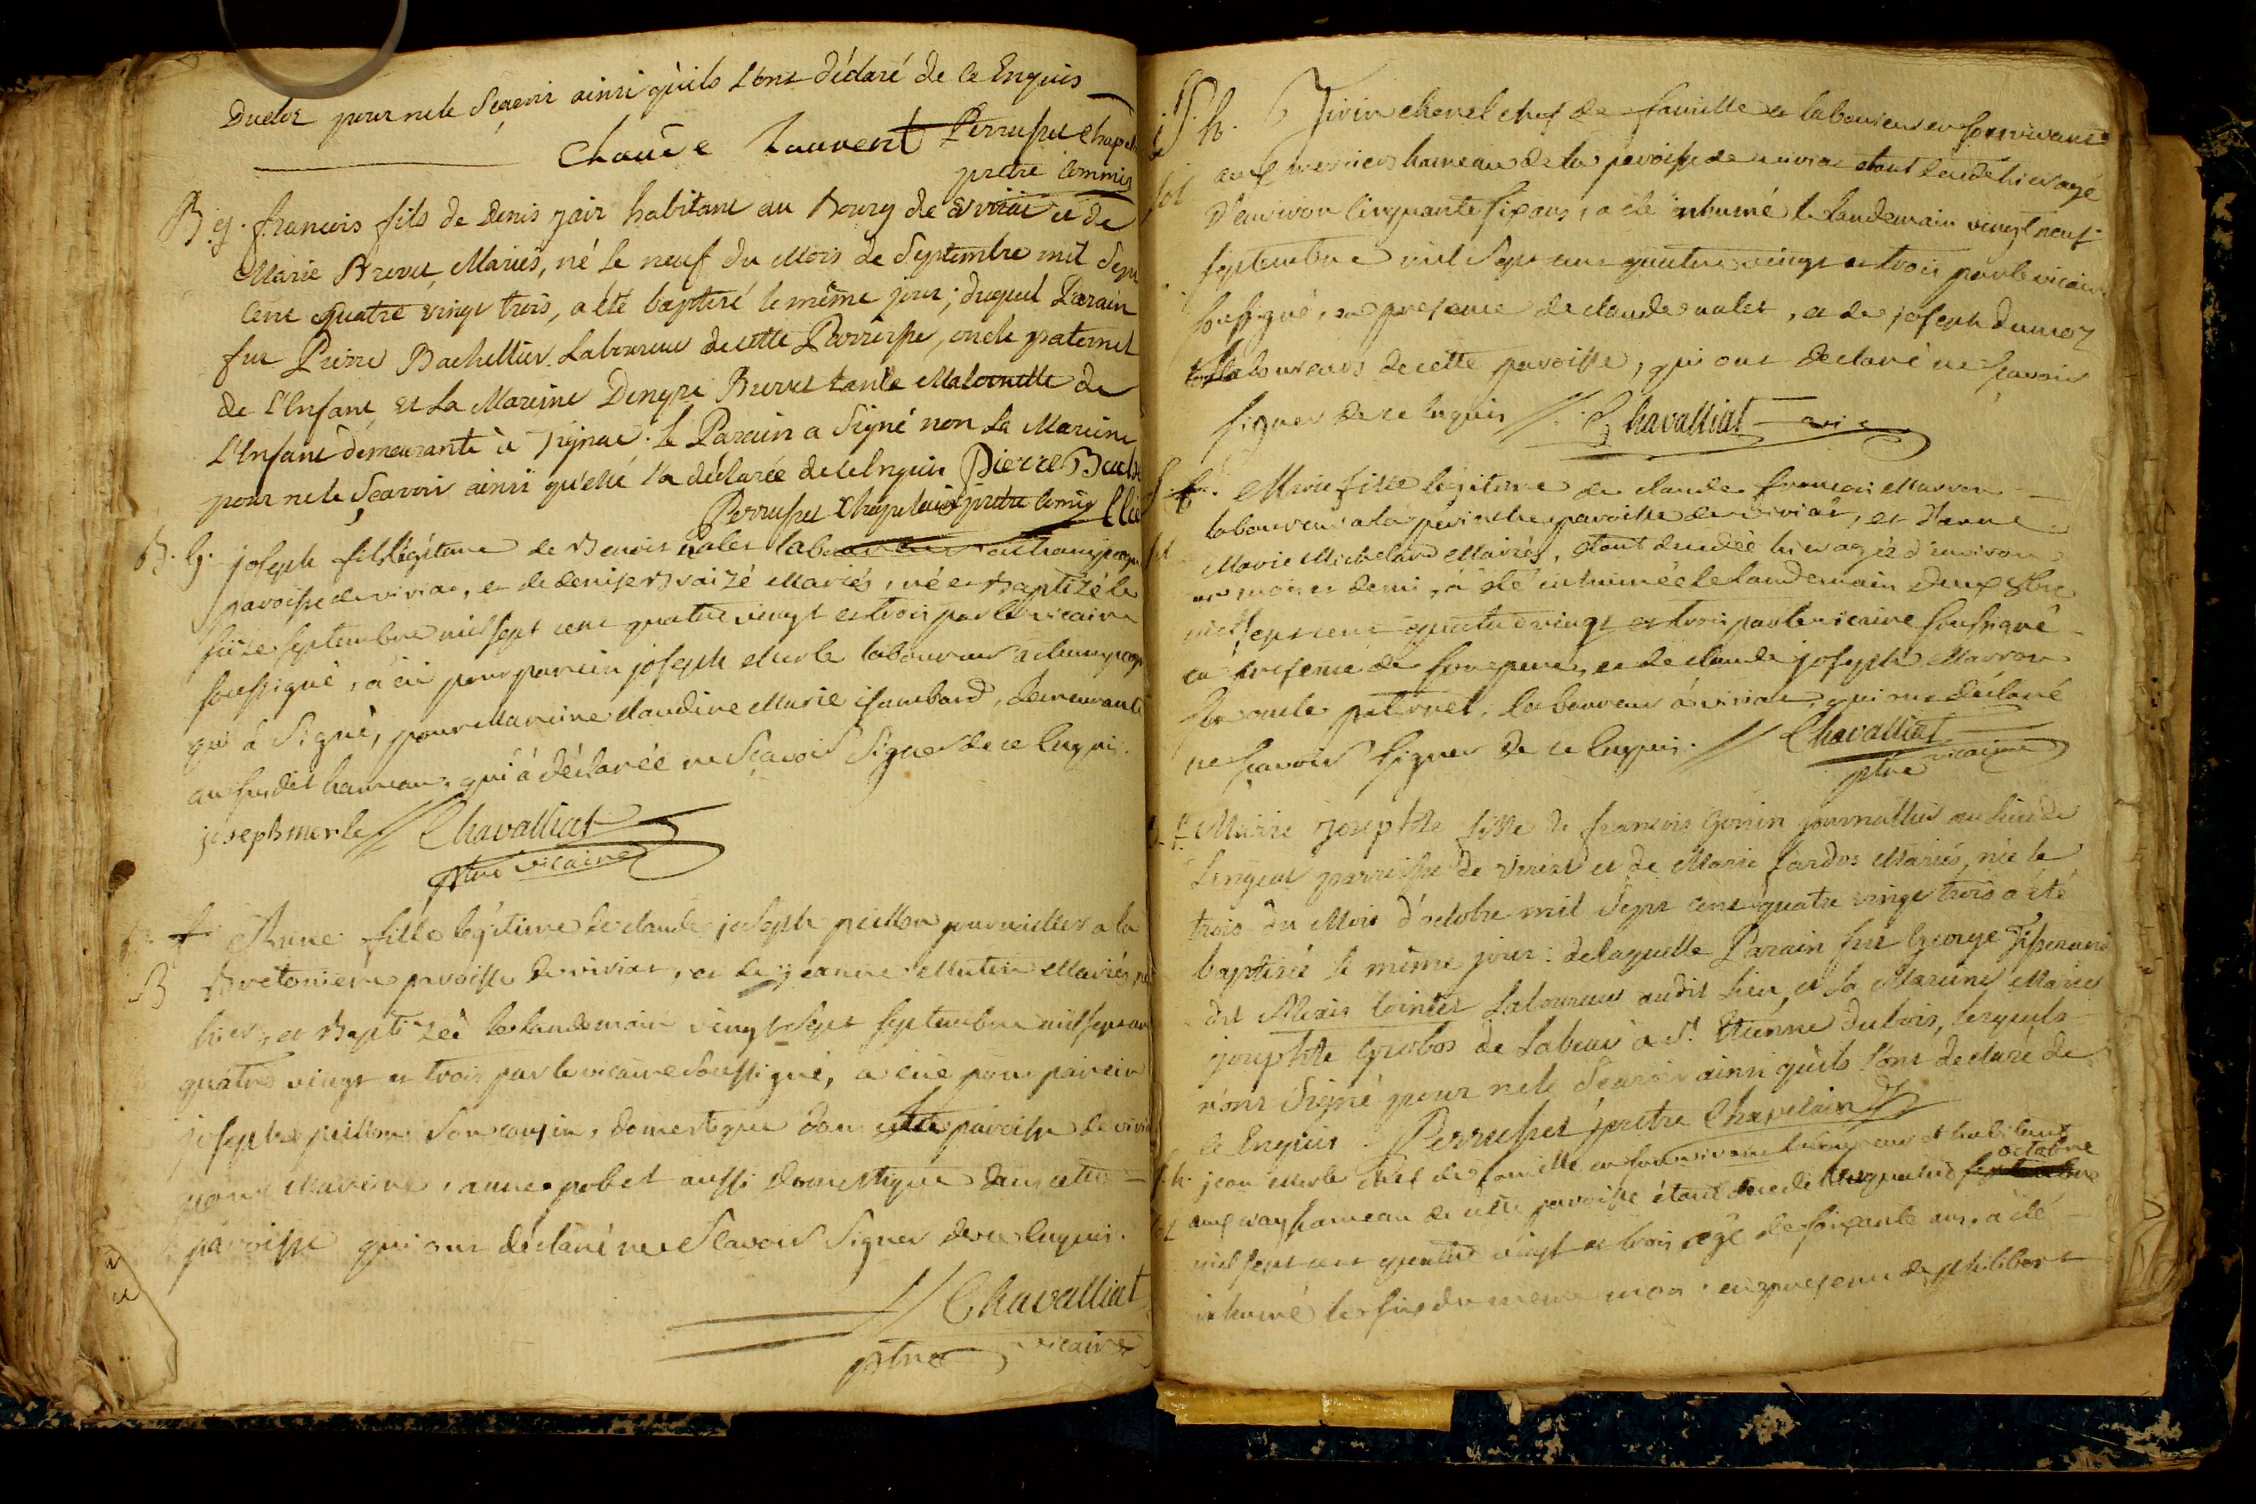 Duclos pour ne le Scavoir ainsi qu'ils l'ont déclaré de ce Enquis
Claude Laurent Perruset Chapel
prètre Commis
B. g. françois fils de Denis jair habitant au Bourg de viriat et de
Marie Brevet Mariés, né le neuf du Mois de Septembre mil Sept
Cent quatre vingt trois, a été baptisé le même jour ; duquel Parain
fut Pierre Bachellier Laboureur de cette Parroisse, oncle paternel
de l'Enfant et La Mareine Denyse Brevet tante Maternelle de
l'Enfant demeurante à jignac. Le Parain a Signé non La Mareine
pour ne le Scavoir ainsi qu'elle l'a déclarée de ce Enquise Pierre Bache
Perruset Chapelain prètre Comis llie
B. g. joseph fils légitime de Benoit Nalet laboureur a Champagne
paroisse de viriat, et de denise Braizé Mariés, né et Baptizé le
seize septembre mil sept cent quatre vingt et trois par le vicaire
soussigné, a eu pour parein joseph Merle laboureur a champagne
qui à Signé, pour Mareine Claudine Marie isambard, demeurante
au susdit hameau, qui à déclarée ne Scavoir Signer de ce Enquis.
joseph merle // Chavalliat
ptre vicaire
f. Anne fille légitime de claude joseph peillon journallier a la
B Bretonière paroisse de viriat, et de jeanne Mutin Mariés, née
hier, et Baptizéé le landemain vingt Sept septembre mil sept cent
quatre vingt et trois par le vicaire Soussigné, a eue pour parein
joseph peillon Son cousin, domestique dans cette paroisse de viria
pour Mareine, anne pobet aussi domestique dans cette
paroisse qui ont déclaré ne Scavoir Signer de ce Enquis.
// Chavalliat
ptre vicaire
S. h. vivin chenel chef de famille et laboureur en son vivant
aux hameau de la paroisse de viriat etant decedé hier agé
d'environ Cinquante six ans, a été inhumé le landemain vingt neuf
septembre mil Sept cent quatre vingt et trois par le vicaire
soussigné, en presence de claude nalet, et de joseph dumoz
laboureurs de cette paroisse, qui ont declaré ne scavoir
signer de ce Enquis // Chavalliat vic
S. f. Marie fille légitime de claude françois Marron
laboureur a la paroisse de viriat, et d'anne
Marie Michelard Mariés, étant decedée hier agée d'environ
un mois et demi, a été inhumée le landemain deux 8bre
mil sept cent quatre vingt et trois par le vicaire soussigné
en presence de son pere, et de claude joseph Marron
son oncle paternel, laboureur à viriat, qui ont déclaré
ne scavoir signer de ce Enquis. // Chavalliat
ptre vicaire
B. f. Marie josephte fille de françois Gonin journallier au lieu de
Lingeat parroisse de Viriat et de Marie fardos Mariés, née le
trois du Mois d'octobre mil Sept cent quatre vingt trois a été
baptisée le même jour : de laquelle Parain fut George
dit Alexis Cointet Laboureur audit lieu, et la Mareine Marie
josephte Gorbos de Labeau à St. Etienne dubois, lesquels
n'ont Signé pour ne le Scavoir ainsi qu'ils l'ont déclaré de
ce Enquis. Perruset prètre Chapelain
S. h. jean Merle chef de famille en son vivant laboureur et habitant
octobre
aux hameau de cette paroisse étant decedé le quatre septembre
mil sept cent quatre vingt et trois agé de soixante ans, a été
inhumé le six du meme mois. en presence de philibert